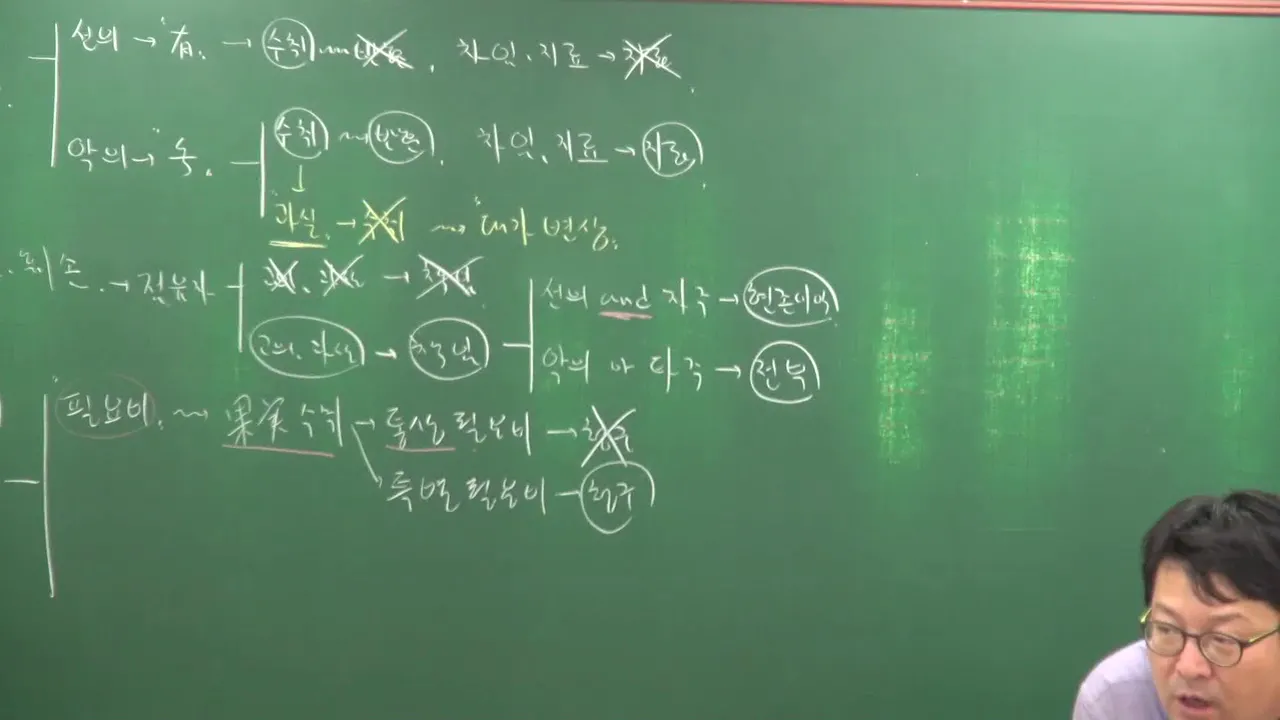 선의 → "有. → 수취 〰 반환. 차임.지료 → 지료.
악의 → "不. 수취 〰 반환. 차임.지료 → 지료.
↓
"과실. → 수취 〰 "대가 변상.
훼손. → 점유자 고의. 과실 → 책임.
선의 and 자주 → 현존이익
고의.과실 → 책임 악의 or 타주 → 전부
"필요비. 〰 果実 수취 → 통상 필요비 → 청구
특별 필요비 → 청구